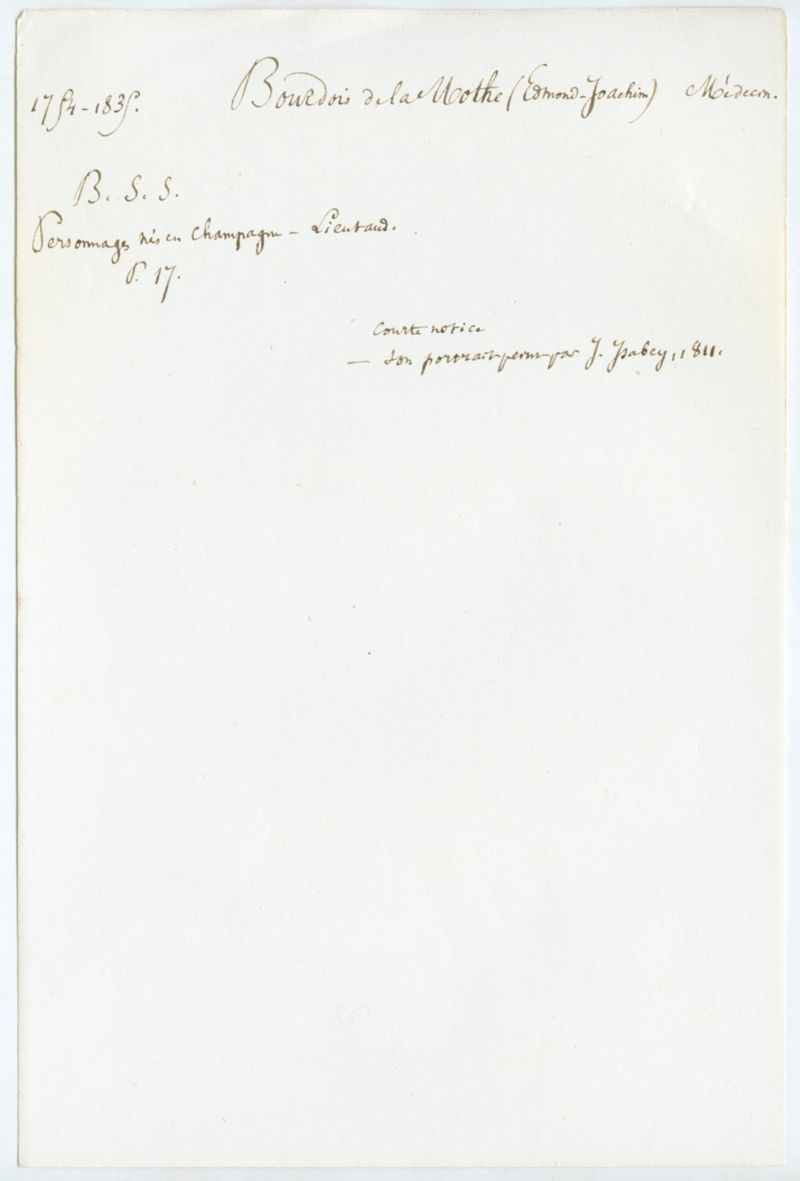 1754-1835. Bourdois de la Mothe (Edmond-Joachim) Médecin.
B. S. S.
Personnages nés en Champagne - Lieutaud.
P. 17.
Courte notice
— Son portrait peint par J. Isabey, 1811.